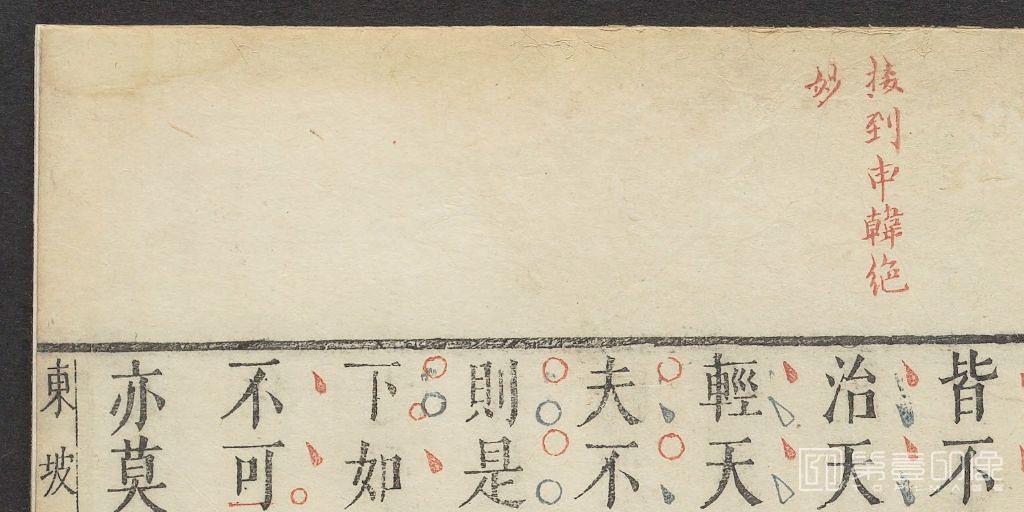 接到申韓絶
妙
皆不
治天
輕天
夫不
則是
下如
不可
亦莫
東坡